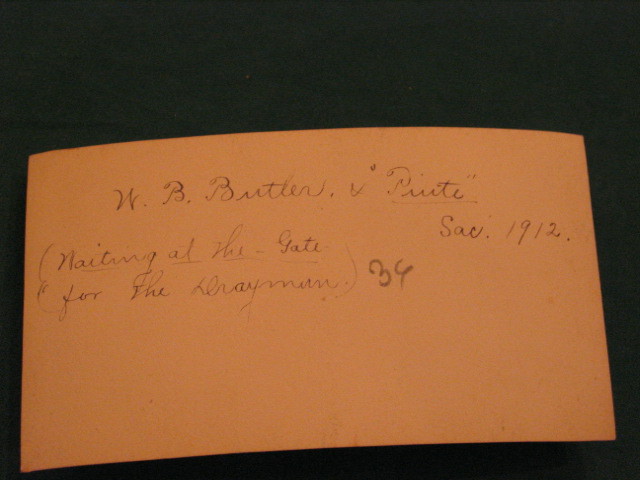 W. B. Butler. & "Piute"
Sac. 1912.
(Waiting at the - Gate
" for the Drayman.) 34